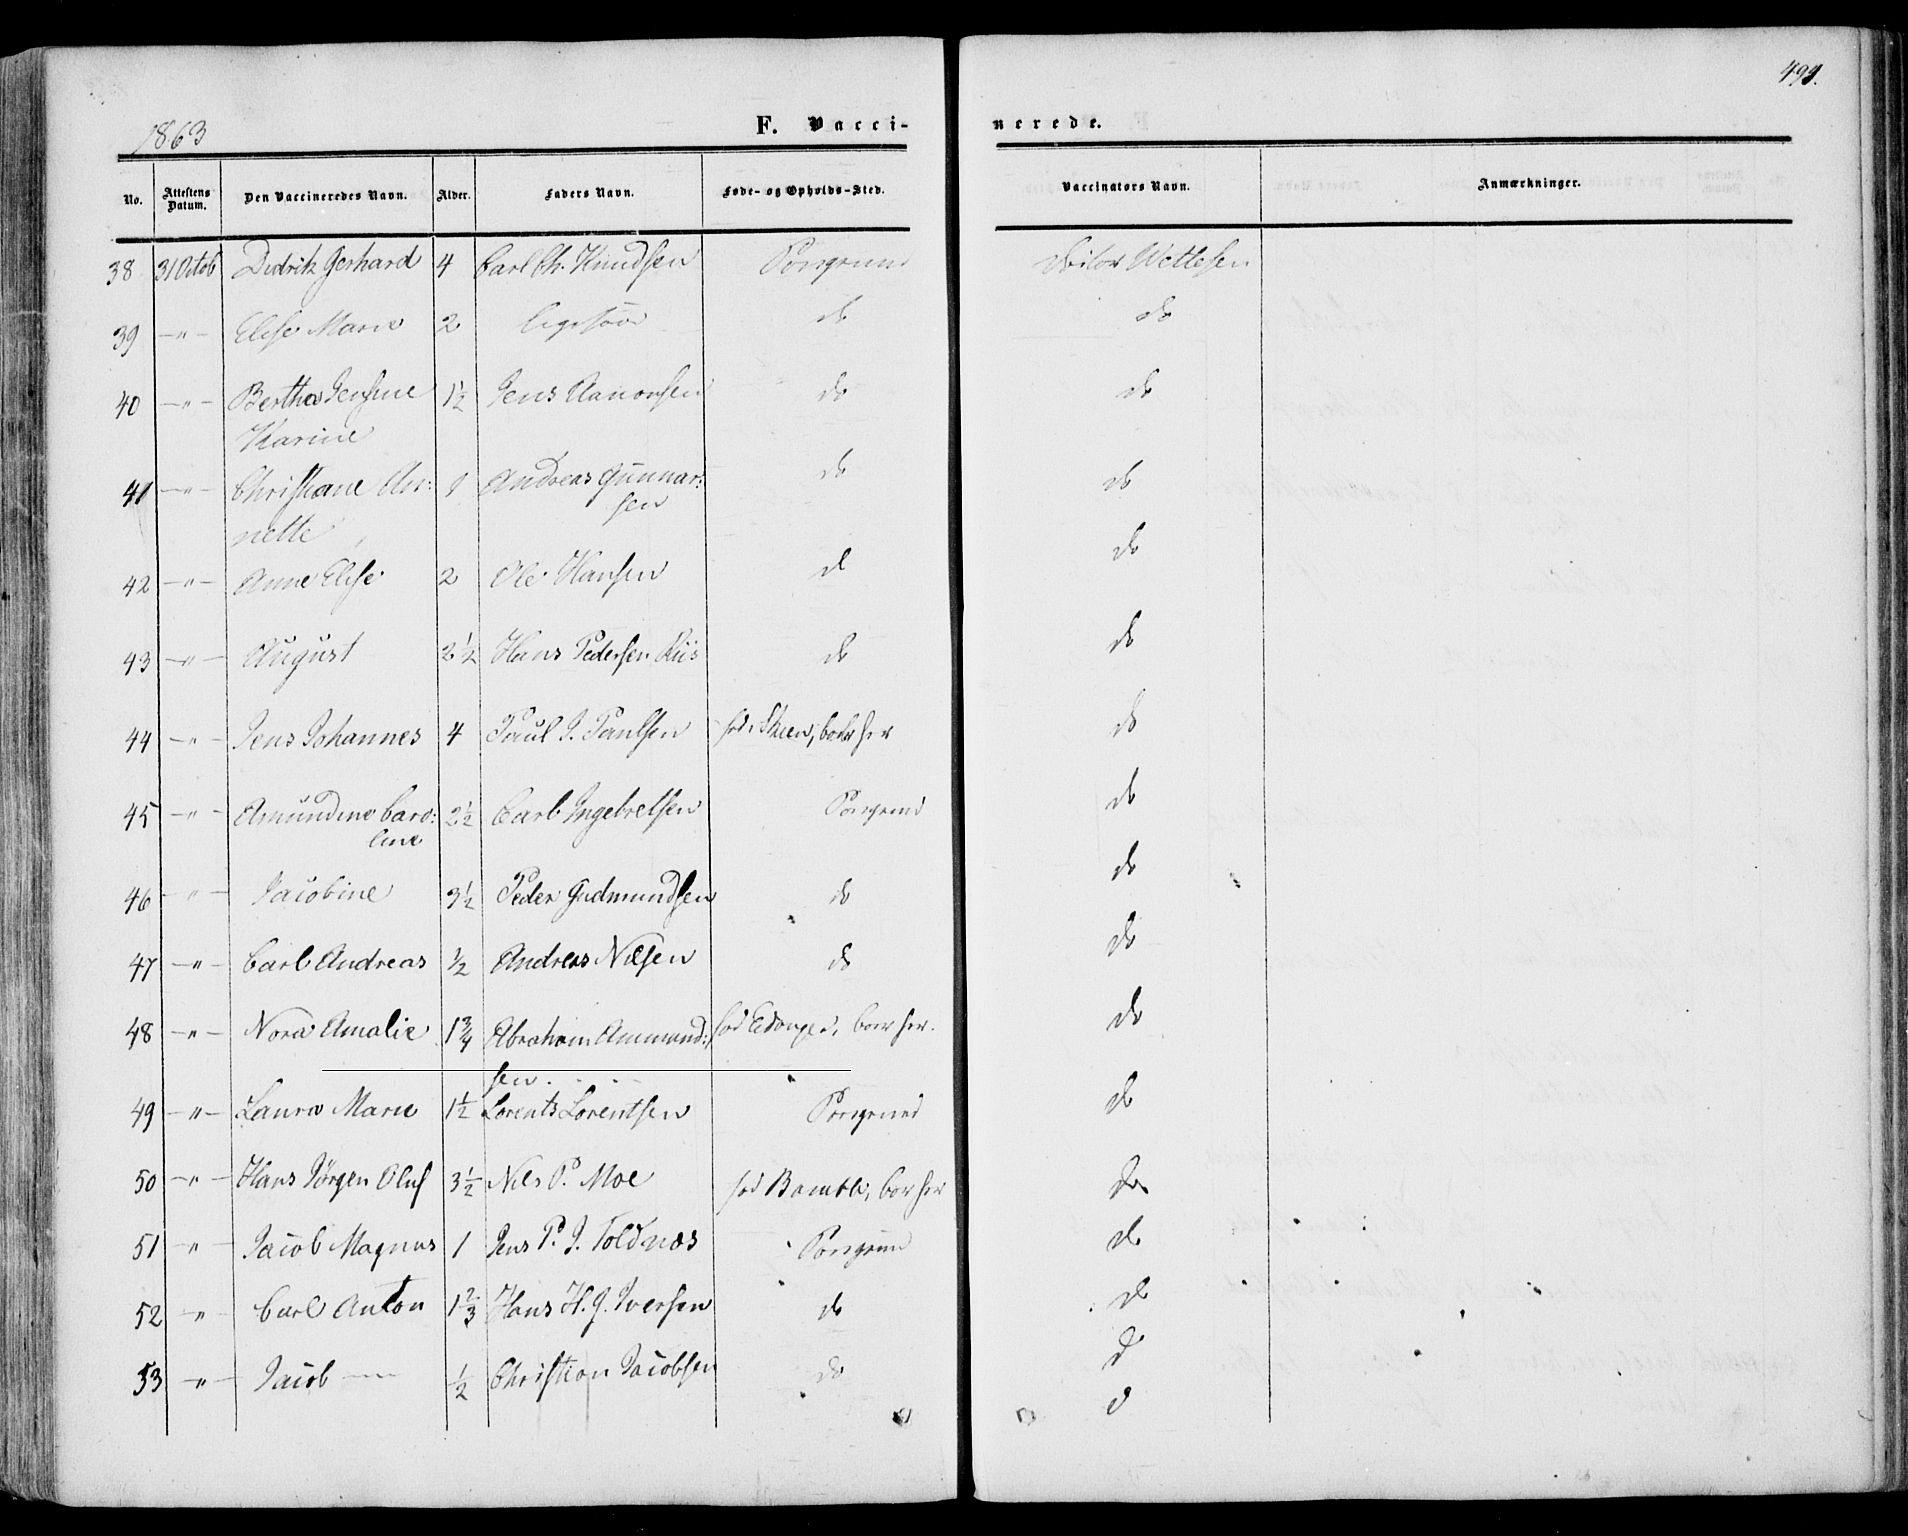 499.
1863
F. Vacci-
nerede.
No. Attestens Datum. Den Vaccineredes Navn. Alder. Faders Navn. Føde- og Opholds-Sted. Vaccinators Navn. Anmærkninger.
38 31 Octob Didrik Gerhard 4 Carl Ch. Knudsen Porsgrund Wettesen
39 -"- Elise Marie 2 do do
40 -"- Bertha Jensine 1½ Jens Aanonsen do do
Karine
41 -"- Christiane An: 1 Andreas Gunnar: do do
nette sen
42 -"- Anne Elise 2 Ole Hansen do do
43 -"- August 2½ Hans Pedersen Riis do do
44 -"- Jens Johannes 4 Paul J. Paulsen fød i Skien, boer her do
45 -"- Amundine Caro: 2½ Carl Ingebretsen Porsgrund do
line
46 -"- Jacobine 3½ Peder Gudmundsen do do
47 -"- Carl Andreas ½ Andreas Nilsen do do
48 -"- Nora Amalie 1¾ Abraham Ammund: fød Eidanger, boer her. do
sen.
49 -"- Laura Marie 1½ Lorents Lorentsen Porsgrund do
50 -"- Hans Jørgen Oluf 3½ Nils P. Moe fød Bamble, boer her do
51 -"- Jacob Magnus 1 Jens P. J. Toldnæs Porsgrund do
52 -"- Carl Anton 1⅔ Hans H. G. Iversen do do
53 -"- Jacob ½ Christian Jacobsen do d
d